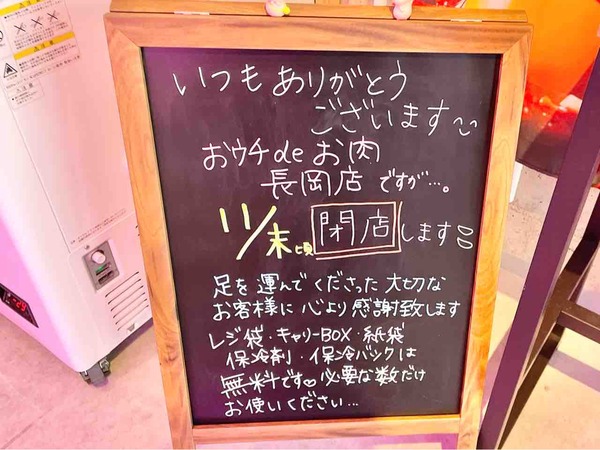 いつもありがとう
ございます
おウチdeお肉
長岡店ですが…。
11/末頃 閉店します
足を運んでくださった大切な
お客様に心より感謝致します
レジ袋・キャリーBOX・紙袋
保冷剤・保冷バックは
無料です♡必要な数だけ
お使いください…